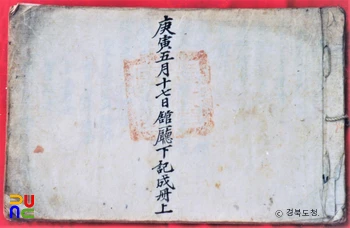 庚寅五月十七日舘廳下記成册上
© 경북도청.